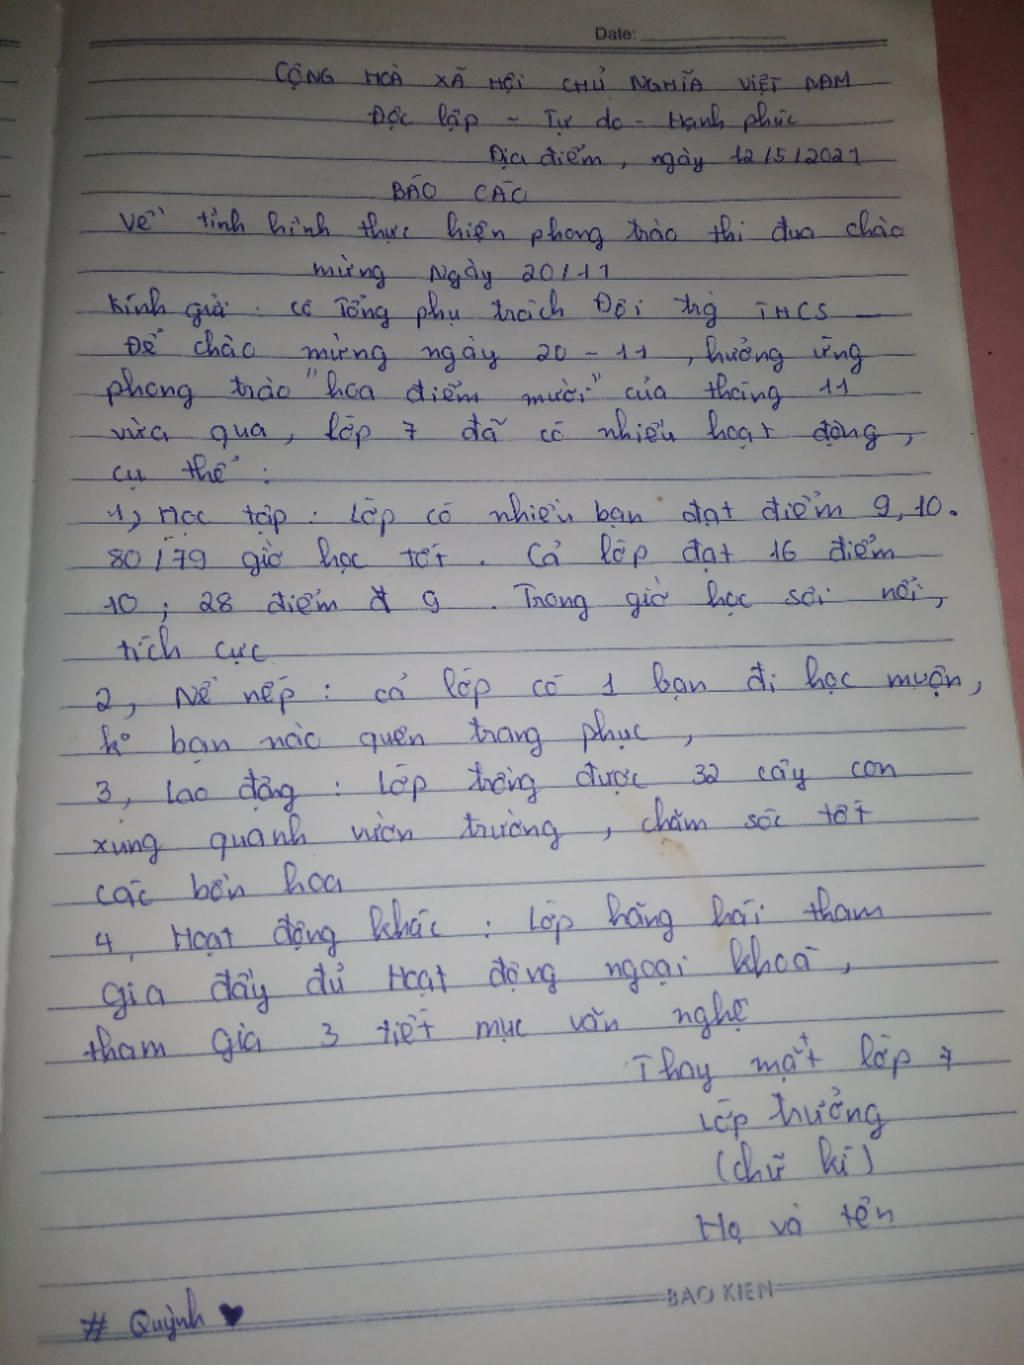 Date:
CỘNG HOÀ XÃ HỘI CHỦ NGHĨA VIỆT NAM
Độc lập - Tự do - Hạnh phúc
Địa điểm, ngày 12/5/2021
BÁO CÁO
Về tình hình thực hiện phong trào thi đua chào
mừng Ngày 20/11
Kính gửi: cô Tổng phụ trách Đội trg THCS
Để chào mừng ngày 20-11, hưởng ứng
phong trào "hoa điểm mười" của tháng 11
vừa qua, lớp 7 đã có nhiều hoạt động,
cụ thể:
1, Học tập: Lớp có nhiều bạn đạt điểm 9, 10.
80/79 giờ học tốt. Cả lớp đạt 16 điểm
10; 28 điểm 9. Trong giờ học sôi nổi,
tích cực
2, Nề nếp: cả lớp có 1 bạn đi học muộn,
ko bạn nào quên trang phục,
3, Lao động: Lớp trồng được 32 cây con
xung quanh vườn trường, chăm sóc tốt
các bồn hoa
4, Hoạt động khác: Lớp hăng hái tham
gia đầy đủ Hoạt động ngoại khoá,
tham gia 3 tiết mục văn nghệ
Thay mặt lớp 7
Lớp trưởng
(chữ kí)
Họ và tên
BAO KIEN
# Quỳnh ♥